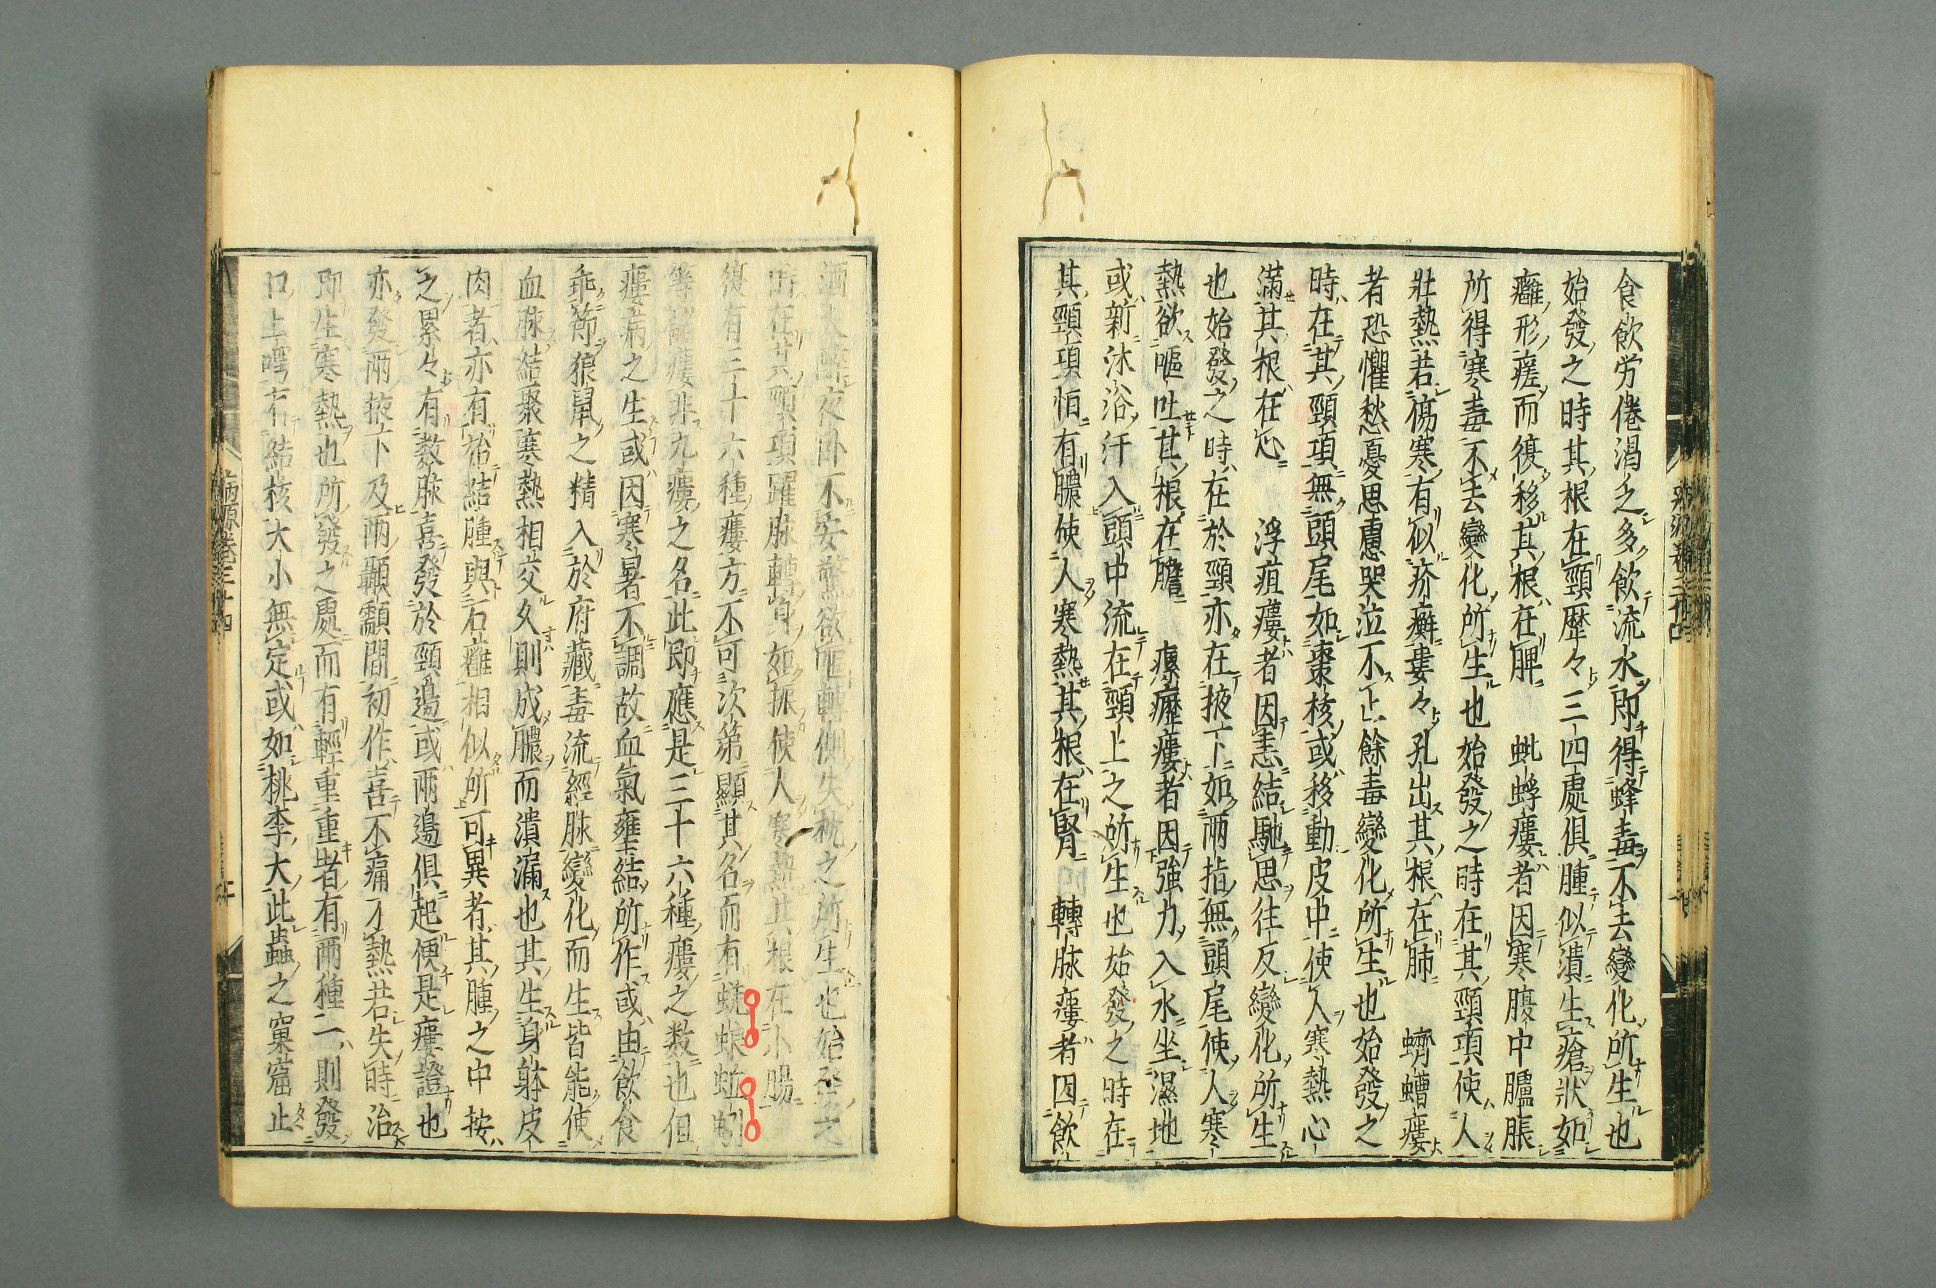 食飲労倦渇乏多飲流水即得蜂毒不去變化所生也
始發之時其根在頸歷々三四處俱腫似潰生瘡狀如
癰形瘥而復移其根在脾 蚍蜉瘻者因寒腹中臚脹
所得寒毒不去變化所生也始發之時在其頸項使人
壯熱若傷寒有似疥癬婁々孔出其根在肺 蠐螬瘻
者恐懼愁憂思慮哭泣不止餘毒變化所生也始發之
時在其頸項無頭尾如棗核或移動皮中使人寒熱心
滿其根在心 浮疽瘻者因恚結馳思往反變化所生
也始發之時在於頸亦在掖下如兩指無頭尾使人寒
熱欲嘔吐其根在膽 瘰癧瘻者因強力入水坐濕地
或新沐浴汗入頭中流在頸上之所生也始發之時在
其頸項恒有膿使人寒熱其根在腎 轉脉瘻者因飲
酒大醉夜卧不安驚欲嘔轉側失枕之所生也始發之
時在其頸項躍脉轉身如振使人寒熱其根在小腸
復有三十六種瘻方不可次第顯其名而有蜣蜋蚯蚓
等諸瘻非九瘻之名此即應是三十六種瘻之數也但
瘻病之生或因寒暑不調故血氣壅結所作或由飲食
乖節狼鼠之精入於府藏毒流經脉變化而生皆能使
血脉結聚寒熱相交久則成膿而潰漏也其生身躰皮
肉者亦有始結腫與石癰相似所可異者其腫之中按
之累々有數脉喜發於頸邊或兩邊俱起便是瘻證也
亦發兩掖下及兩顳顬間初作喜不痛不熱若失時治
即生寒熱也所發之處而有輕重重者有兩種二則發
口上齶有結核大小無定或如桃李大此蟲之窠窟止
病源卷三十四